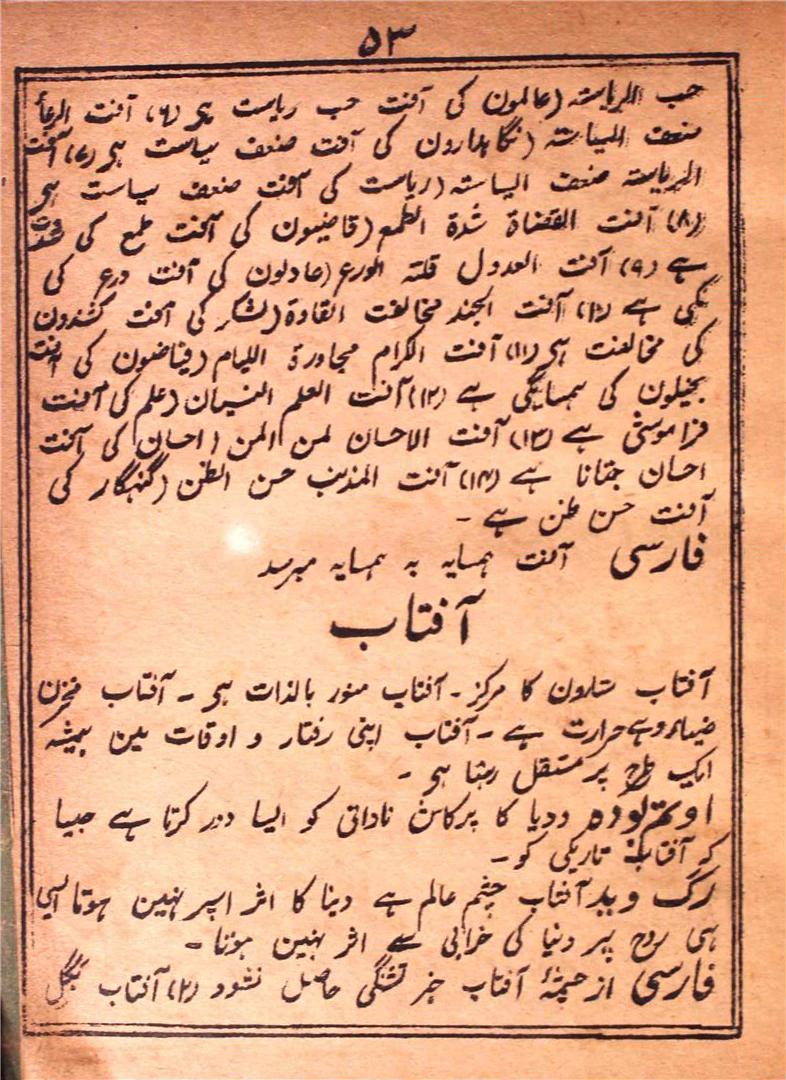 ۵۳
حب الریاستہ (عالمون کی آفت حب ریاست ہی (۶) آفت الرعأ
ضعف السیاستہ (نگاہدارون کی آفت ضعف سیاست ہی (۷) آفت
الریاستہ ضعف السیاستہ (ریاست کی آفت ضعف سیاست ہی
(۸) آفت القضاة شدة الطمع (قاضیون کی آفت طمع کی شدت
ہے (۹) آفت العدول قلتہ الورع (عادلون کی آفت ورع کی
کمی ہے (۱۰) آفت الجند مخالفت القادة (لشکر کی آفت کشندون
کی مخالفت ہی (۱۱) آفت الکرام مجاورة اللیام (فیاضون کی آفت
بخیلون کی ہمسایگی ہے (۱۲) آفت العلم النسیان (علم کی آفت
فراموشی ہے (۱۳) آفت الاحسان لمن المن (احسان کی آفت
احسان جتانا ہے (۱۴) آفت المذنب حسن الظن (گنہگار کی
آفت حسن ظن ہے -
فارسی آفت ہمسایہ بہ ہمسایہ میرسد
آفتاب
آفتاب ستارون کا مرکز - آفتاب منور بالذات ہی - آفتاب مخزن
ضیاء و حرارت ہے - آفتاب اپنی رفتار و اوقات مین ہمیشہ
ایک طرح پر مستقل رہتا ہی -
اوتم بودہ ودیا کا پرکاش نادانی کو ایسا دور کرتا ہے جیسا
کہ آفتاب تاریکی کو -
رگ وید آفتاب چشم عالم ہے دینا کا اثر اسپر نہین ہوتا ایسی
ہی روح پر دنیا کی خرابی سے اثر نہین ہوتا -
فارسی از چشمۂ آفتاب جز تشنگی حاصل نشود (۲) آفتاب بگل